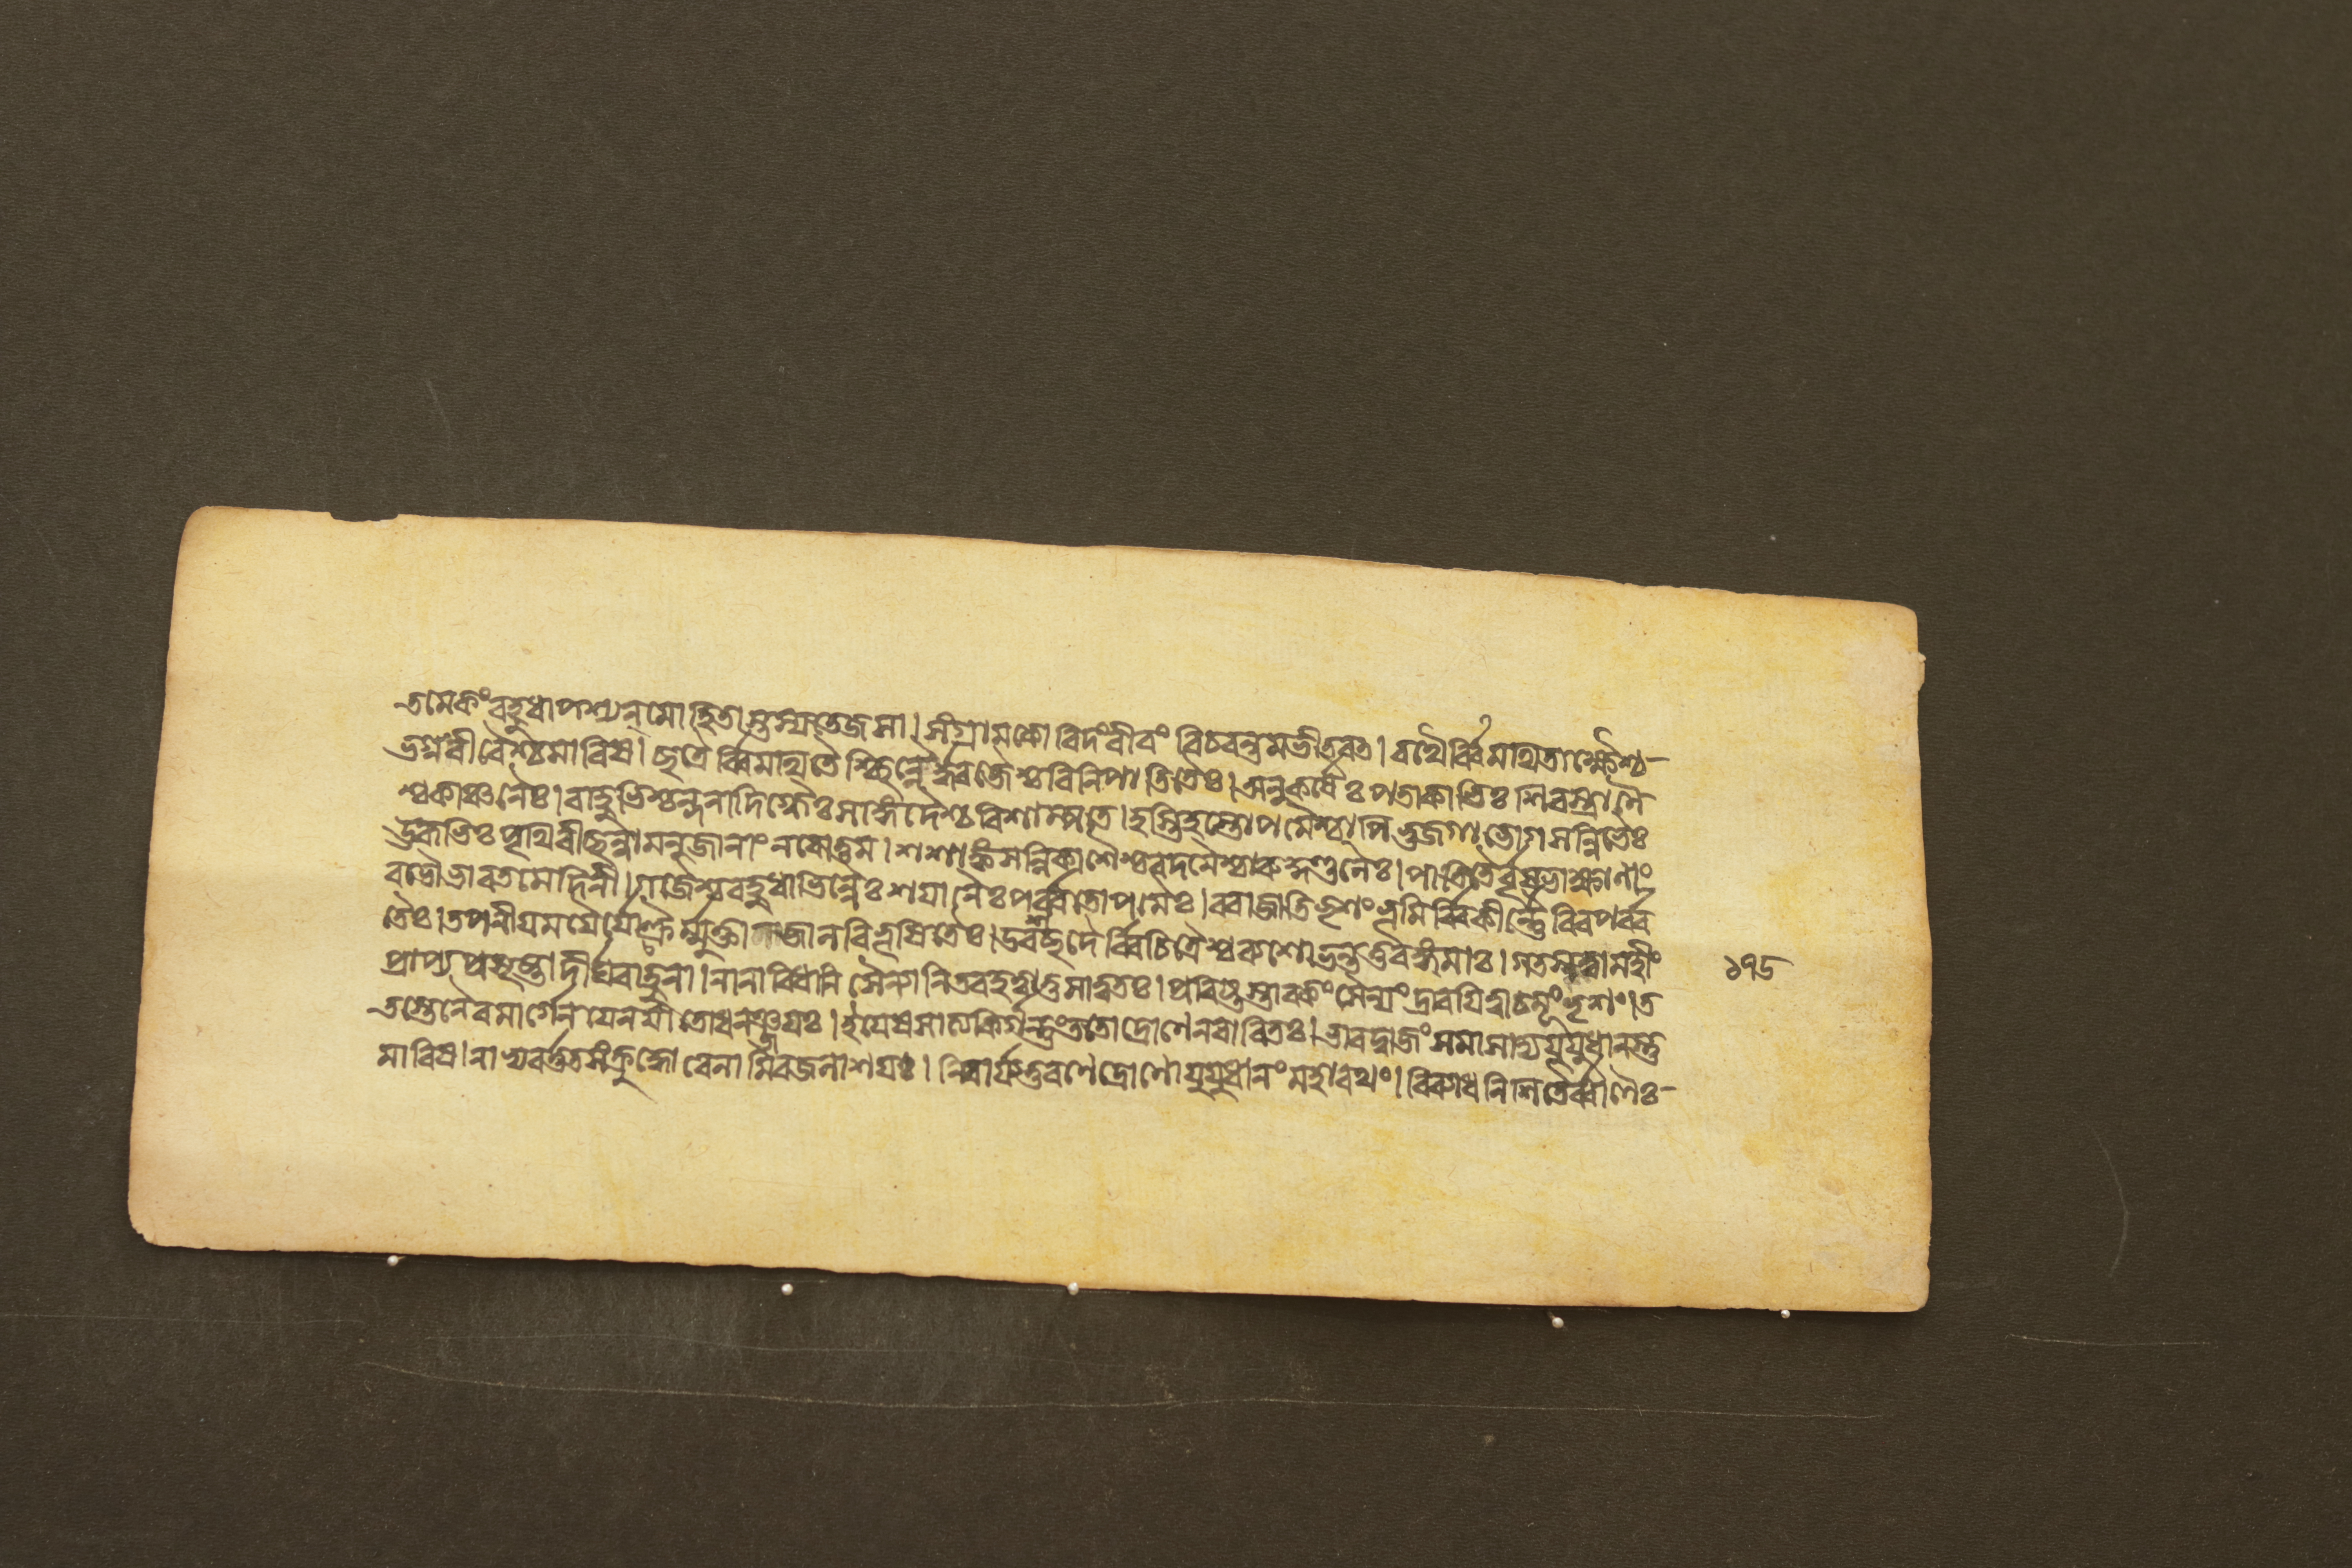 তমেকংবহুধাপশ্যন্মোহিতাস্তস্যতেজসা। সংগ্রামকোবিদংবীরং বিচরন্তমভীতবত। রথৈর্ব্বিমথিতাক্ষৈশ্চ-
ভগ্ননীডৈশ্চমারিষ। ছত্রৈর্ব্বিমথিতৈশ্ছিন্নৈর্ধ্বজৈশ্চবিনিপাতিতৈঃ। অনুকর্ষৈঃপতাকাভিঃশিরস্ত্রাণৈ
শ্চকাঞ্চনৈঃ। বাহুভিশ্চন্দনাদিগ্ধৈঃসাঙ্গদৈশ্চবিশাম্পতে। হস্তিহস্তোপমৈশ্চাপিভুজগাভোগসন্নিভৈঃ
ঊরুভিঃপৃথিবীছন্নামনুজানাং নরোত্তম। শশাঙ্কসন্নিকাশৈশ্চবদনৈশ্চারুকুণ্ডলৈঃ। পতিতৈর্বৃষভাক্ষাণাং
বভৌভারতমেদিনী। গজৈশ্চবহুধাভিন্নৈঃশয়ানৈঃপর্ব্বতোপমৈঃ। ররাজাতিভৃশংভূমির্ব্বিকীর্ণৈরিবপর্ব্ব
তৈঃ। তপনীয়ময়ৈর্যোক্ত্রৈর্ম্মুক্তাজালবিভূষিতৈঃ। উরশ্ছদৈর্ব্বিচিত্রৈশ্চব্যশোভন্ততুরঙ্গমাঃ। গতসত্ত্বামহীং
প্রাপ্যপ্রমৃষ্টাদীর্ঘবাহুনা। নানাবিধানি সৈন্যানিতবহত্বাতুসাত্বতঃ। প্রবিষ্টস্তাবকংসৈন্যংদ্রাবয়িত্বাচমূংভৃশং। ত
তস্তেনৈবমার্গেনযেনযাতোধনঞ্জয়ঃ। ইয়েষসাত্যকির্গন্তুংততোদ্রোণেনবারিতঃ। ভারদ্বাজংসমাসাদ্যযুযুধানস্তু
মারিষ। নাভ্যবর্ত্ততসংক্রুদ্ধোবেলামিবজলাশয়ঃ। নিবার্য্যতুরণেদ্রোণোযুযুধানংমহারথং। বিব্যাধনিশিতৈর্ব্বাণৈঃ-
১৭৮